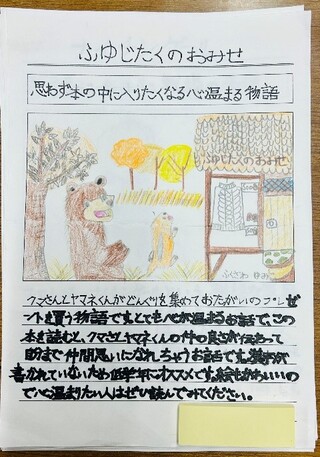 ふゆじたくのおみせ
思わず本の中に入りたくなる心温まる物語
ふゆじたくのおみせ
ふくざわ ゆみこ
クマさんとヤマネくんがどんぐりを集めておたがいのプレゼ
ントを買う物語です。とても心が温まるお話で、この
本を読むと、クマさんとヤマネくんの仲の良さが伝わって
自分まで仲間思いになれちゃうお話です。漢字が
書かれていないため低学年にオススメです。絵もかわいいの
で心温まりたい人はぜひ読んでみてください。